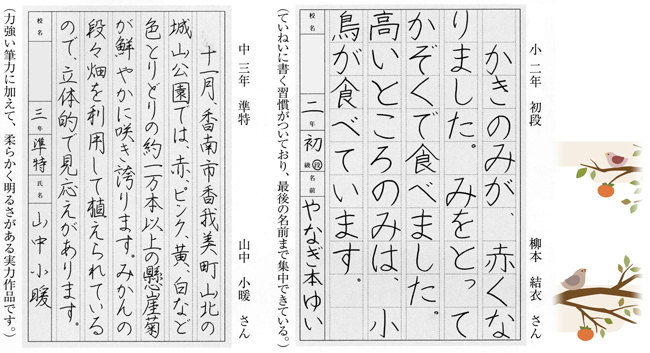 小二年　初段　柳本　結衣　さん
かきのみが、赤くな
りました。みをとって
かぞくで食べました。
高いところのみは、小
鳥が食べています。
校名　二年　初級段　名前　やなぎ本ゆい
（ていねいに書く習慣がついており、最後の名前まで集中できている。）
中三年　準特　山中　小暖　さん
十一月、香南市香我美町山北の
城山公園では、赤、ピンク、黄、白など
色とりどりの約一万本以上の懸崖菊
が鮮やかに咲き誇ります。みかんの
段々畑を利用して植えられている
ので、立体的で見応えがあります。
校名　三年　準特　氏名　山中小暖
（力強い筆力に加えて、柔らかく明るさがある実力作品です。）